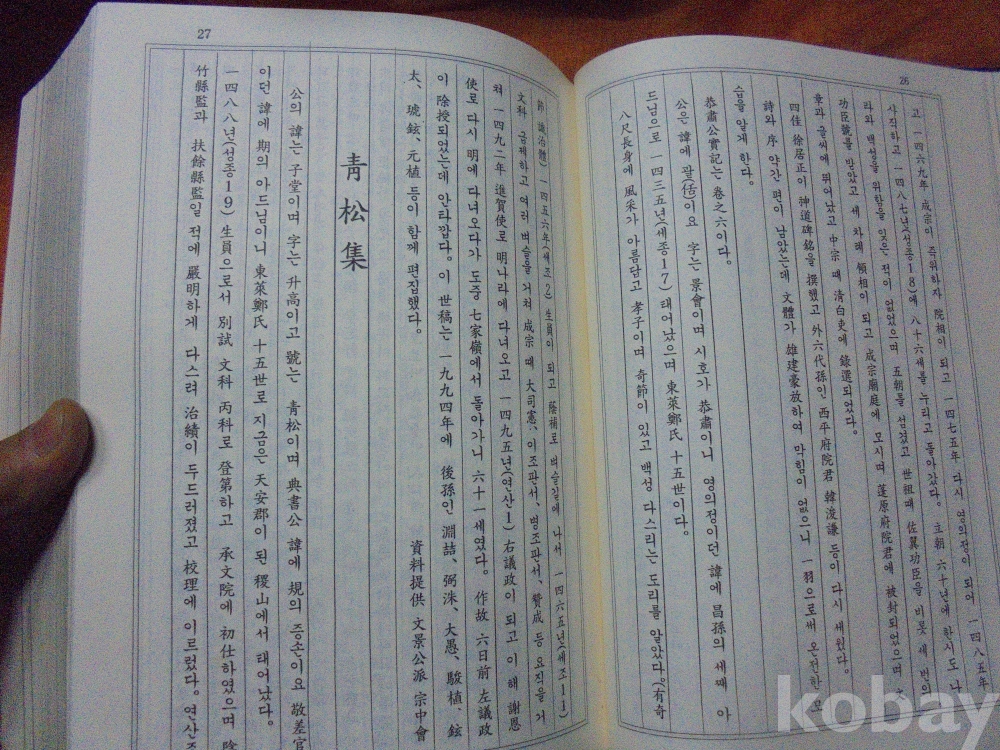 26
고 一四六九年 成宗이 즉위하자 院相이 되고 一四七五年 다시 영의정이 되어 一四八五
사직하고 一四八七년(성종18)에 八十六세를 누리고 돌아갔다. 立朝 六十년에 한시도 나
라와 백성을 위함을 잊은 적이 없었으며 五朝를 섬겼고 世祖때 佐翼功臣을 비롯 세 번의
功臣號를 받았고 세 차례 領相이 되고 成宗廟庭에 모시며 蓬原府院君에 被封되었으며
章과 글씨에 뛰어났고 中宗 때 清白吏에 錄選되었다.
四佳 徐居正이 神道碑銘을 撰했고 外六代孫인 西平府院君 韓浚謙 등이 다시 세웠다.
詩와 序 약간 편이 남았는데 文體가 雄建豪放하여 막힘이 없으니 一羽으로써 온전한 모
습을 알게 한다.
恭肅公實記는 卷之六이다.
公은 諱에 괄(佸)이요 字는 景會이며 시호가 恭肅이니 영의정이던 諱에 昌孫의 세째 아
드님으로 一四三五년(세종17) 태어났으며 東萊鄭氏 十五世이다.
八尺長身에 風采가 아름답고 孝子이며 奇節이 있고 백성 다스리는 도리를 알았다.(有奇
節 識治體) 一四五六年(세조2) 生員이 되고 蔭補로 벼슬길에 나서 一四六五년(세조11)
文科 급제하고 여러 벼슬을 거쳐 成宗 때 大司憲、이조판서、병조판서、贊成 등 요직을 거
쳐 一四九二年 進賀使로 明나라에 다녀오고 一四九五년(연산1) 右議政이 되고 이 해 謝恩
使로 다시 明에 다녀오다가 도중 七家嶺에서 돌아가니 六十一세였다。作故 六日前 左議政
이 除授되었는데 안타깝다。이 世稿는 一九九四年에 後孫인 淵喆、弼洙、大愚、駿植、鉉
太、琥鉉、元植 등이 함께 편집했다。
資料提供 文景公派 宗中會
27
靑松集
公의 諱는 子堂이며 字는 升高이고 號는 青松이며 典書公 諱에 規의 증손이요 敬差官
이던 諱에 期의 아드님이니 東萊鄭氏 十五世로 지금은 天安郡이 된 稷山에서 태어났다。
一四八八년(성종19) 生員으로서 別試 文科 丙科로 登第하고 承文院에 初仕하였으며 陰
竹縣監과 扶餘縣監일 적에 嚴明하게 다스려 治績이 두드러졌고 校理에 이르렀다。연산조
kobay